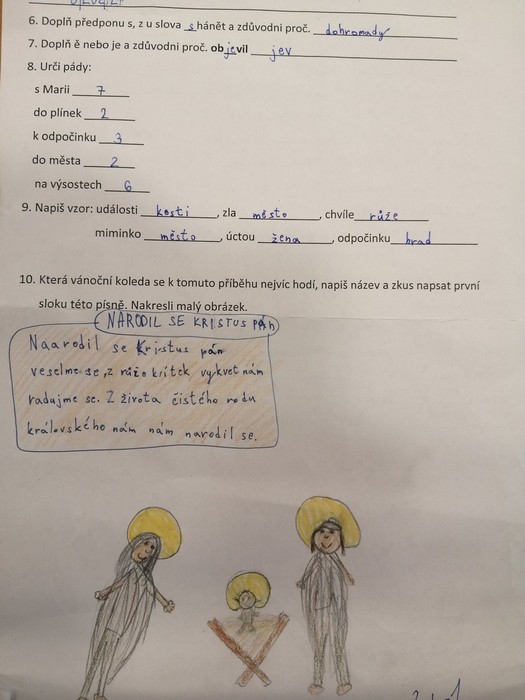 6. Doplň předponu s, z u slova s hánět a zdůvodni proč. dohromady
7. Doplň ě nebo je a zdůvodni proč. objevil jev
8. Urči pády:
s Marii 7
do plínek 2
k odpočinku 3
do města 2
na výsostech 6
9. Napiš vzor: události kosti, zla město, chvíle růže
miminko město, úctou žena, odpočinku hrad
10. Která vánoční koleda se k tomuto příběhu nejvíc hodí, napiš název a zkus napsat první
sloku této písně. Nakresli malý obrázek.
NARODIL SE KRISTUS PÁN
Naarodil se Kristus pán
veselme se, z růže krítek vykvet nám
radujme se. Z života čistého rodu
královského nám nám narodil se.